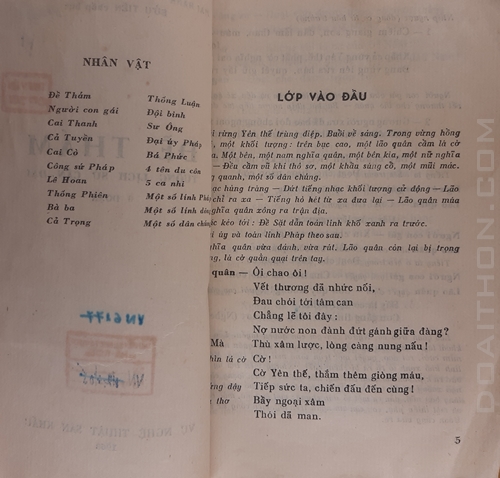 NHÂN VẬT
Đề Thám Thống Luận
Người con gái Đội bình
Cai Thanh Sư Ông
Cả Tuyền Đại úy Pháp
Cai Cỏ Bà Phức
Công sứ Pháp 4 tên du côn
Lê Hoan 5 ca nhi
Thống Phiên Một số lính Pháp
Bà ba Một số lính dõng
Cả Trọng Một số dân chúng
LỚP VÀO ĐẦU
rừng Yên thế trùng điệp. Buổi về sáng. Trong vừng hồng
, một khối tượng: trên bục cao, một lão quân cầm lá cờ
. Một bên, một nam nghĩa quân, một bên kia, một nữ nghĩa
— Đều cầm vũ khí thô sơ, một khẩu sàng cồ, một mũi mác.
quanh, một số dân chúng.
ạc hùng tráng — Dứt tiếng nhạc khối tượng cử động — Lão
chỉ ra xa — Tiếng hò hét từ xa đưa lại — Lão quân múa
nghĩa quân xông ra trận địa.
c kèo tới: Đề Sặt dẫn toán lính khố xanh ra trước.
i úy và toán lính Pháp theo sau.
ghĩa quân vừa đánh, vừa rút. Lão quân còn lại bị trọng
g, lá cờ quằn quại trên tay.
quân — Ôi chao ôi!
Vết thương đã nhức nối,
Đau chói tới tâm can
Chẳng lẽ tôi đây:
Nợ nước non đành đứt gánh giữa đàng?
Mà Thù xâm lược, lòng càng nung nấu!
hìn lá cờ Cờ!
Cờ Yên thế, thắm thêm giòng máu,
ứng dậy Tiếp sức ta, chiến đấu đến cùng!
thơ Bầy ngoại xâm
Thói dã man.
5
DOAITHON.COM